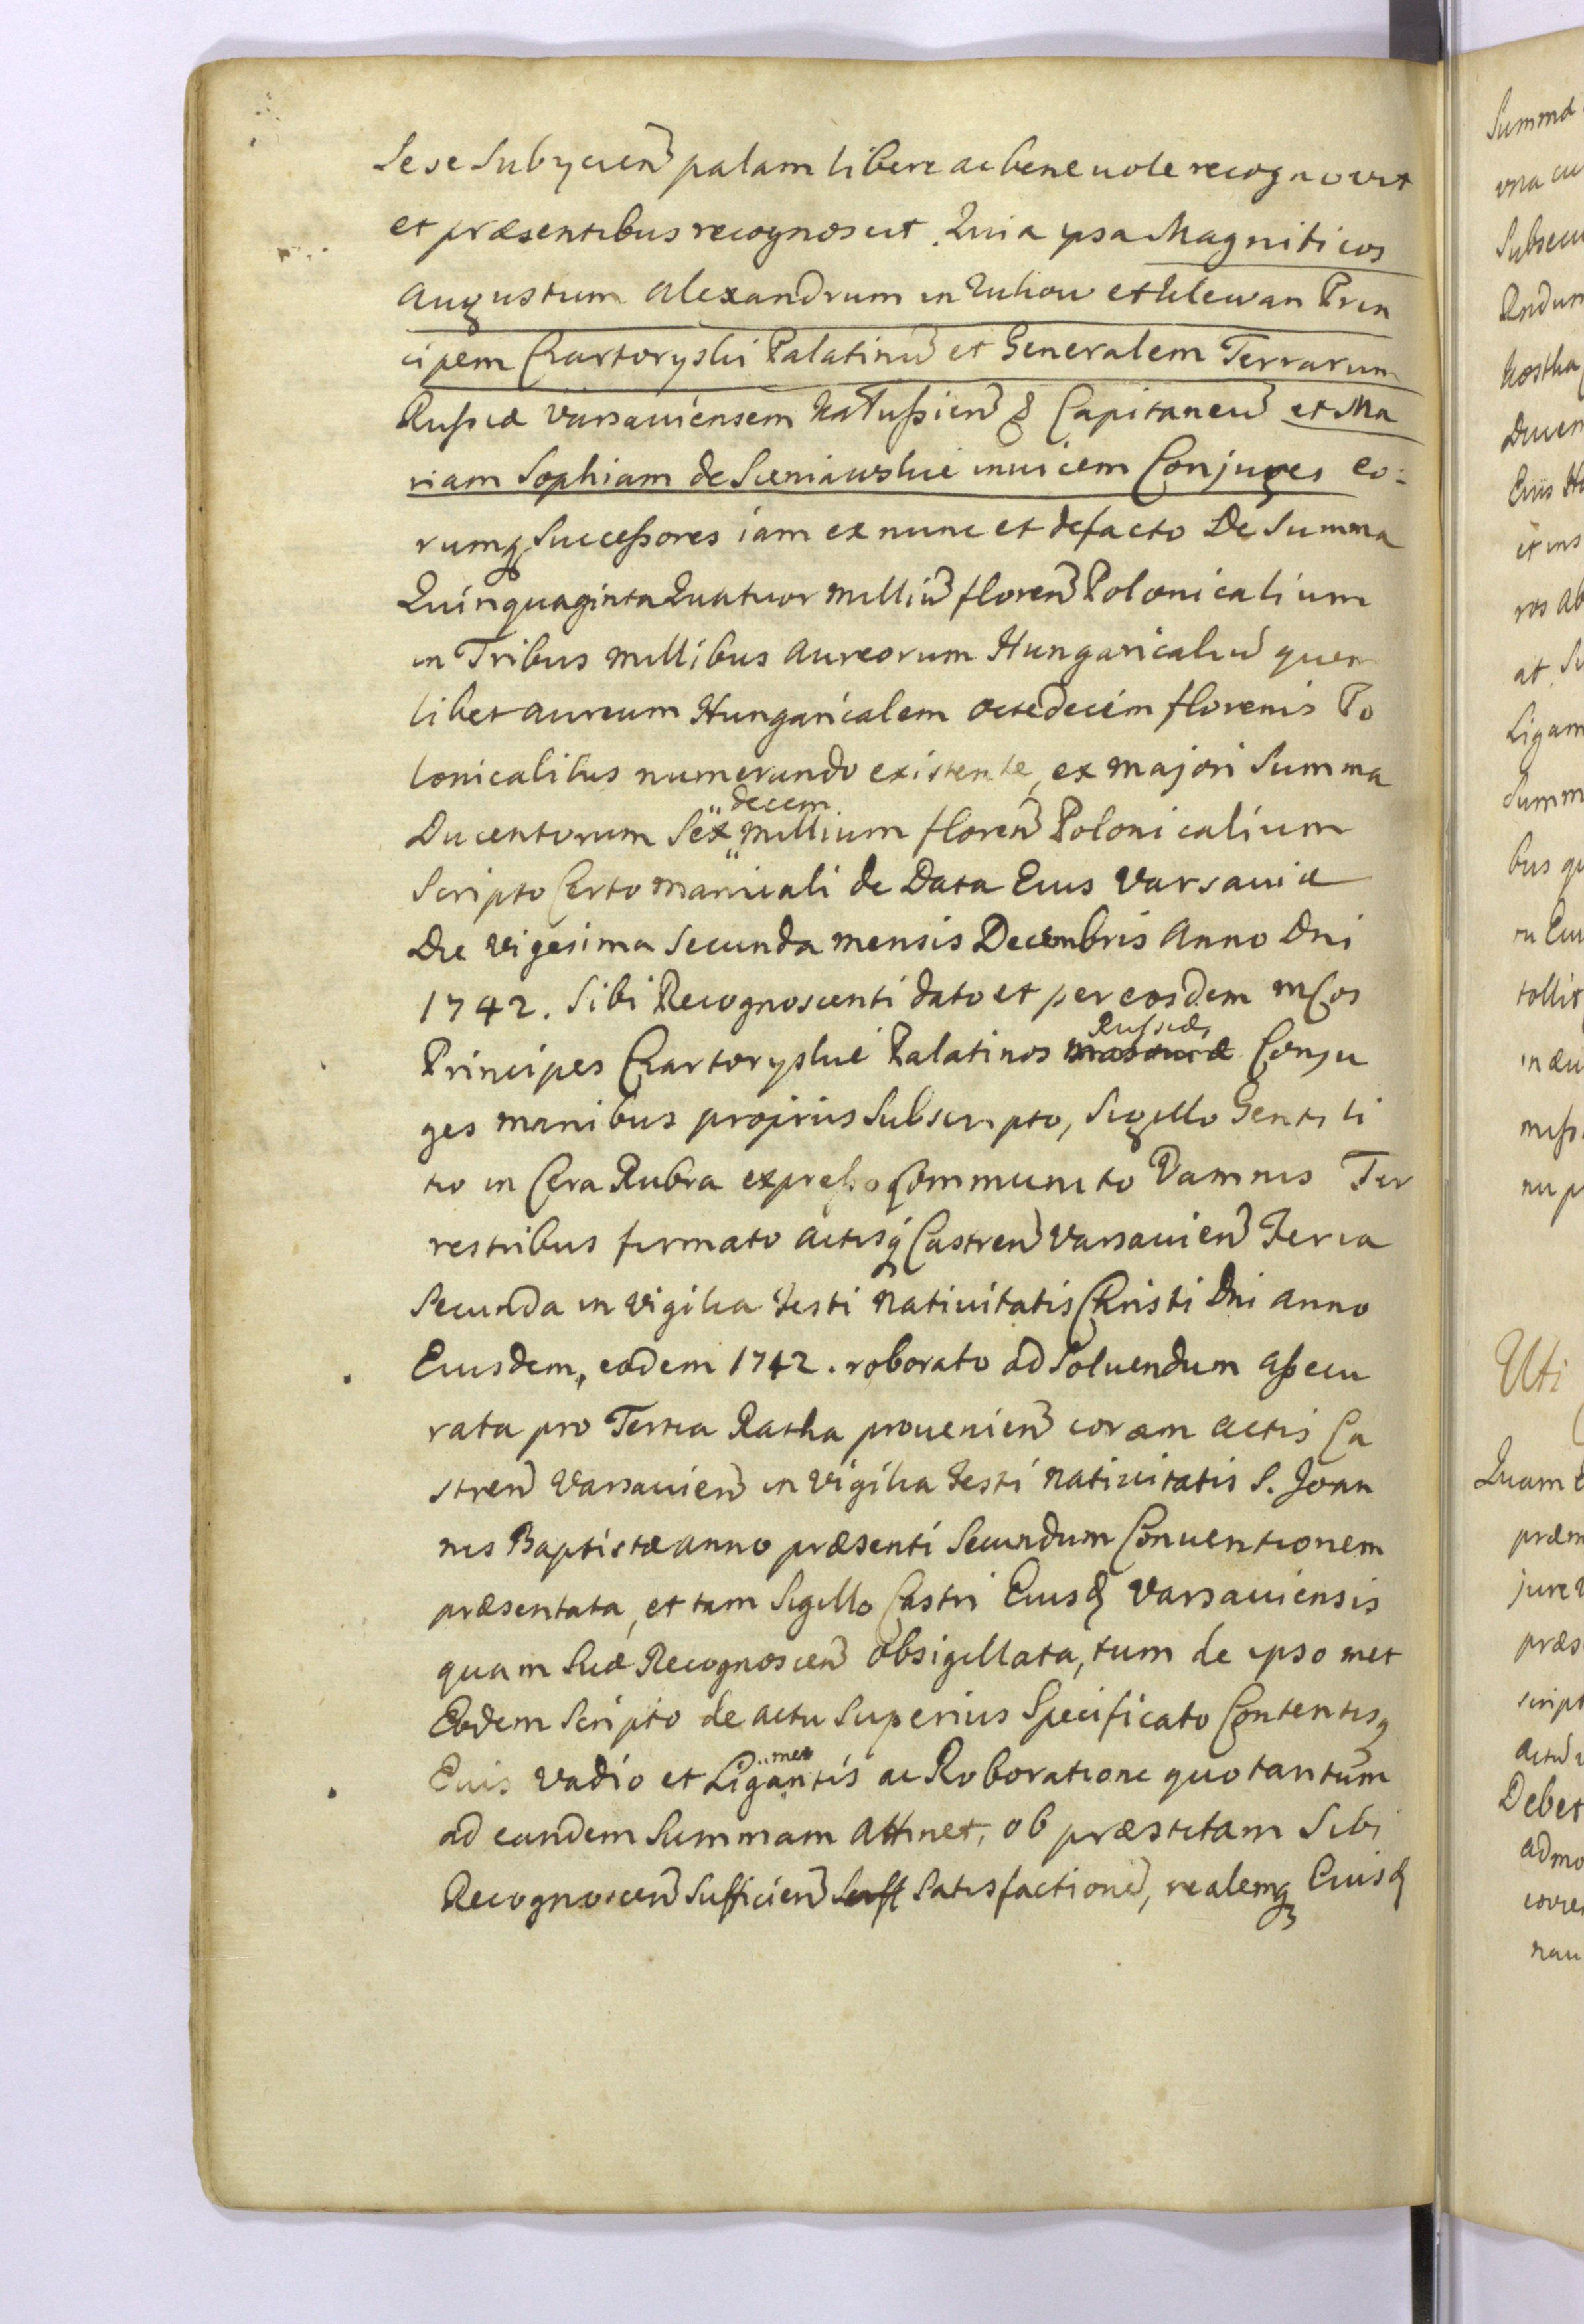 Sese Subycien palam libere ac beneuole recognovit
et præsentibus recognoscit. Quia ipsa Magnificos
Augustum Alexandrum in Zukow et Klewan Prin
cipem Czartoryski Palatinũ et Generalem Terrarum
Russiæ Varsauiensem Kałussien & Capitaneũ et Ma
riam Sophiam de Sieniawskie inuicem Conjuges eo:
rumq Successores iam ex nunc et de facto De Summa
Quinquaginta Quatuor milliũ floren Polonicalium
in Tribus millibus Aureorum Hungaricaliũ quem
libet aureum Hungaricalem octodecim florenis Po
lonicalibus numerando existente, ex majori Summa
Ducentorum Sex decem millium floren Polonicalium
Scripto Certo manuali de Data Eius Varsauiæ
Die vigesima Secunda mensis Decembris Anno Dni
1742. Sibi Recognoscenti dato et per eosdem mcos
Principes Czartoryskie Palatinos Masouiæ Russiæ Conju
ges manibus proprijs Subscripto, Sigillo Gentili
tio in Cera Rubra expresso Communito Damnis Ter
restribus firmato actisq Castren Varsauien Feria
Secunda in vigilia Festi Natiuitatis Christi Dni anno
Eiusdem, eodem 1742. roborato ad Soluendum assecu
rata pro Tertia Ratha prouenien coram actis Ca
stren Varsauien in vigilia Festi Natiuitatis S. Joan
nis Baptistæ anno præsenti Secundum Conuentionem
præsentata, et tam Sigillo Castri Eiusd Varsauiensis
quam Suæ Recognoscen obsigillata, tum de ipso met
Eodem Scripto de actu Superius Specificato Contentisq
Eius vadio et Ligamentis ac Roboratione quo tantum
ad eandem Summam attinet, ob præstitam Sibi
Recognoscen Sufficien Satisfactionẽ, realemq Eiusd
Summa
vna cu
Subsecu
Kostha
Eius
ros ab
at
Ligam
Summ
bus qu
tollit
nu p
Uti
Quam
præm
jure
præs
script
Debet
admo
nau